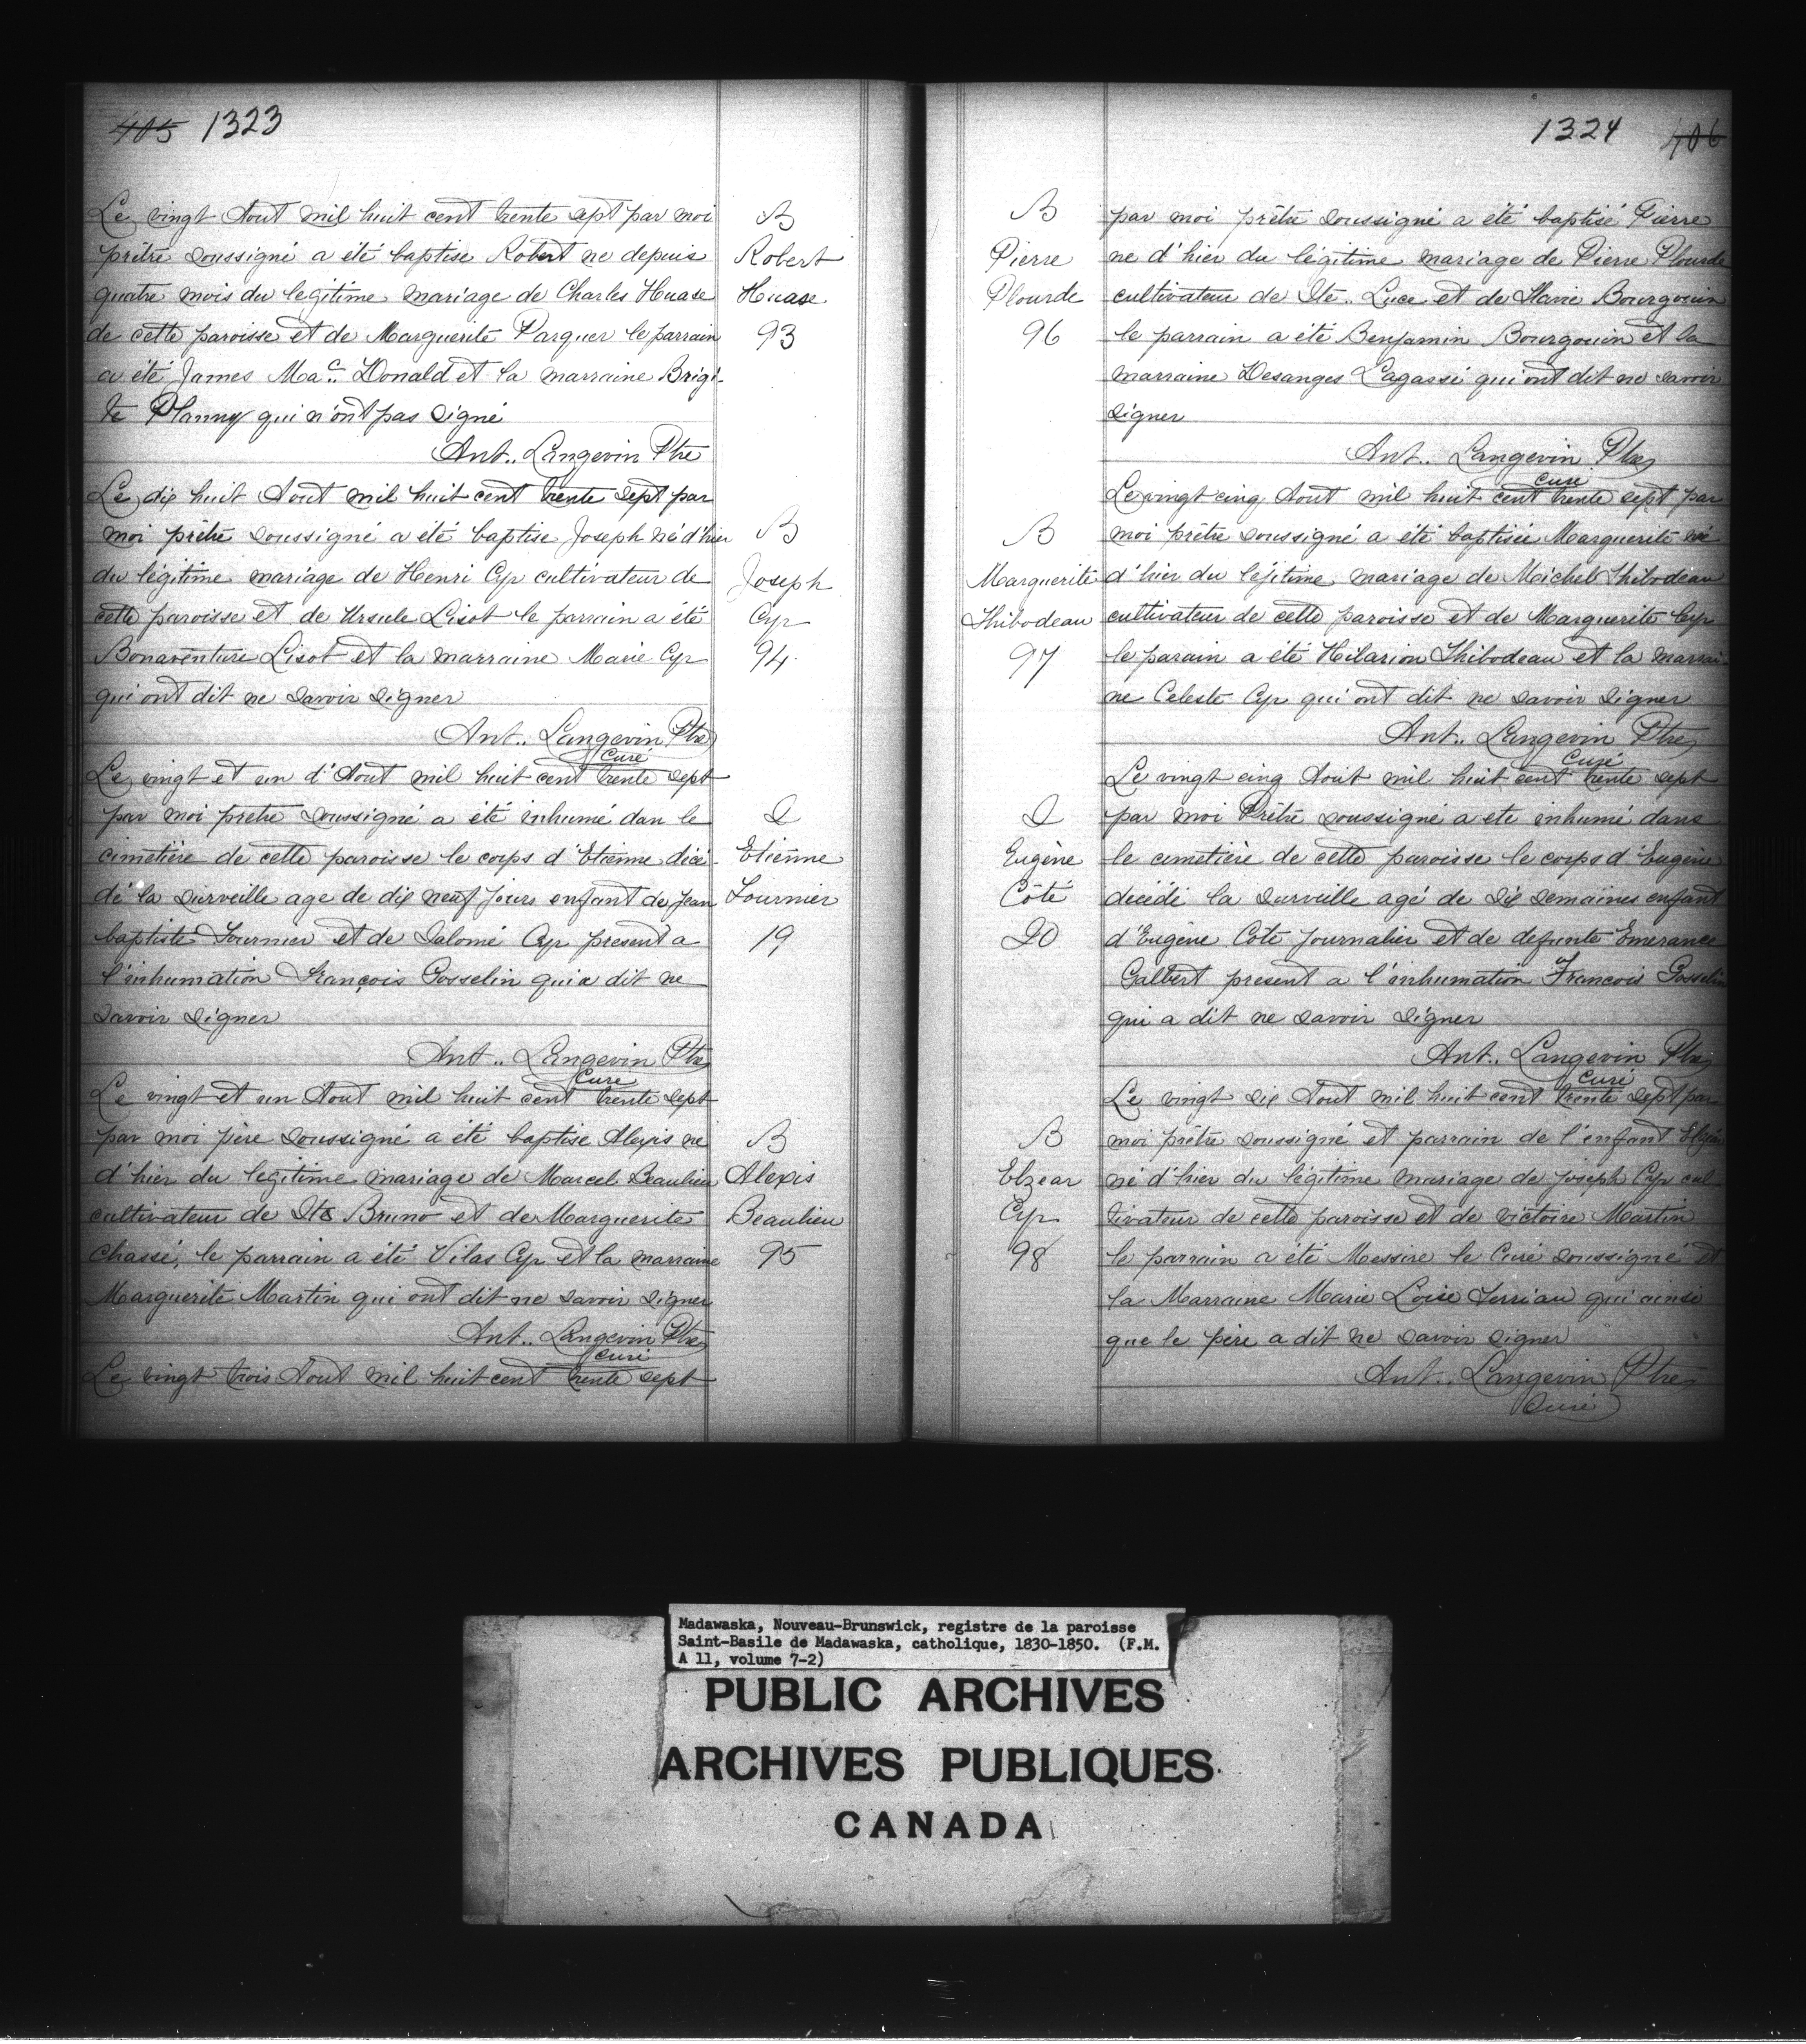 405 1323
Le vingt Aout mil huit cent trente sept par moi
prêtre soussigné a été baptise Robert ne depuis
quatre mois du legitime mariage de Charles Huase
de cette paroisse et de Marguerite Parquer le parrain
a été James Mac. Donald et la marraine Brigi-
te Planny qui n'ont pas signé
Ant.. Langevin Ptre
B
Robert
Huase
93
Le dix huit Aout mil huit cent trente sept par
moi prêtre soussigné a été baptise Joseph né d'hier
du légitime mariage de Henri Cyr cultivateur de
cette paroisse et de Ursule Lisot le parrain a été
Bonaventure Lisot et la marraine Marie Cyr
qui ont dit ne savoir signer
Ant.. Langevin Ptre
Curé
B
Joseph
Cyr
94
Le vingt et un d'Aout mil huit cent trente sept
par moi prêtre soussigné a été inhumé dan le
cimetière de cette paroisse le corps d'Etienne décé-
dé la surveille age de dix neuf jours enfant de Jean
baptiste Fournier et de Salomé Cyr present a
l'inhumation François Gosselin qui a dit ne
savoir signer
Ant.. Langevin Ptre
Cure
S
Etienne
Fournier
19
Le vingt et un Aout mil huit cent trente sept
par moi père soussigné a été baptise Alexis ne
d'hier du legitime mariage de Marcel Beaulieu
cultivateur de Ste Bruno et de Marguerite
Chassé, le parrain a été Vilas Cyr et la marraine
Marguerite Martin qui ont dit ne savoir signer
Ant.. Langevin Ptre
Curé
B
Alexis
Beaulieu
95
Le vingt trois Aout mil huit cent trente sept
1324 406
par moi prêtre soussigné a été baptisé Pierre
ne d'hier du légitime mariage de Pierre Plourde
cultivateur de Ste.. Luce et de Marie Bourgouin
le parrain a été Benjamin Bourgouin et la
marraine Desanges Lagassé qui ont dit ne savoir
signer
Ant.. Langevin Ptre
Curé
B
Pierre
Plourde
96
Le vingt cinq Aout mil huit cent trente sept par
moi prêtre soussigné a été baptisée Marguerite né
d'hier du léjitime mariage de Michel Thibodeau
cultivateur de cette paroisse et de Marguerite Cyr
le parain a été Hilarion Thibodeau et la marrai-
ne Celeste Cyr qui ont dit ne savoir signer
Ant.. Langevin Ptre
Curé
B
Marguerite
Thibodeau
97
Le vingt cinq Aout mil huit cent trente sept
par moi Prêtre soussigné a ete inhumé dans
le cimetière de cette paroisse le corps d'Eugène
décédé la surveille agé de six semaines enfant
d'Eugène Côte Journalier et de defunte Emerance
Galbert present a l'inhumation Francois Gosselin
qui a dit ne savoir signer
Ant.. Langevin Ptre
Curé
S
Eugène
Côté
20
Le vingt six Aout mil huit cent trente sept par
moi prêtre soussigné et parrain de l'enfant Elzéar
né d'hier du légitime mariage de joseph Cyr cul
tivateur de cette paroisse et de victoire Martin
le parrain a été Messire le Curé soussigné et
la Marraine Marie Loise Terriau qui ainsi
que le père a dit ne savoir signer
Ant.. Langevin Ptre
Curé
B
Elzear
Cyr
98
Madawaska, Nouveau-Brunswick, registre de la paroisse
Saint-Basile de Madawaska, catholique, 1830-1850. (F.M.
A 11, volume 7-2)
PUBLIC ARCHIVES
ARCHIVES PUBLIQUES
CANADA